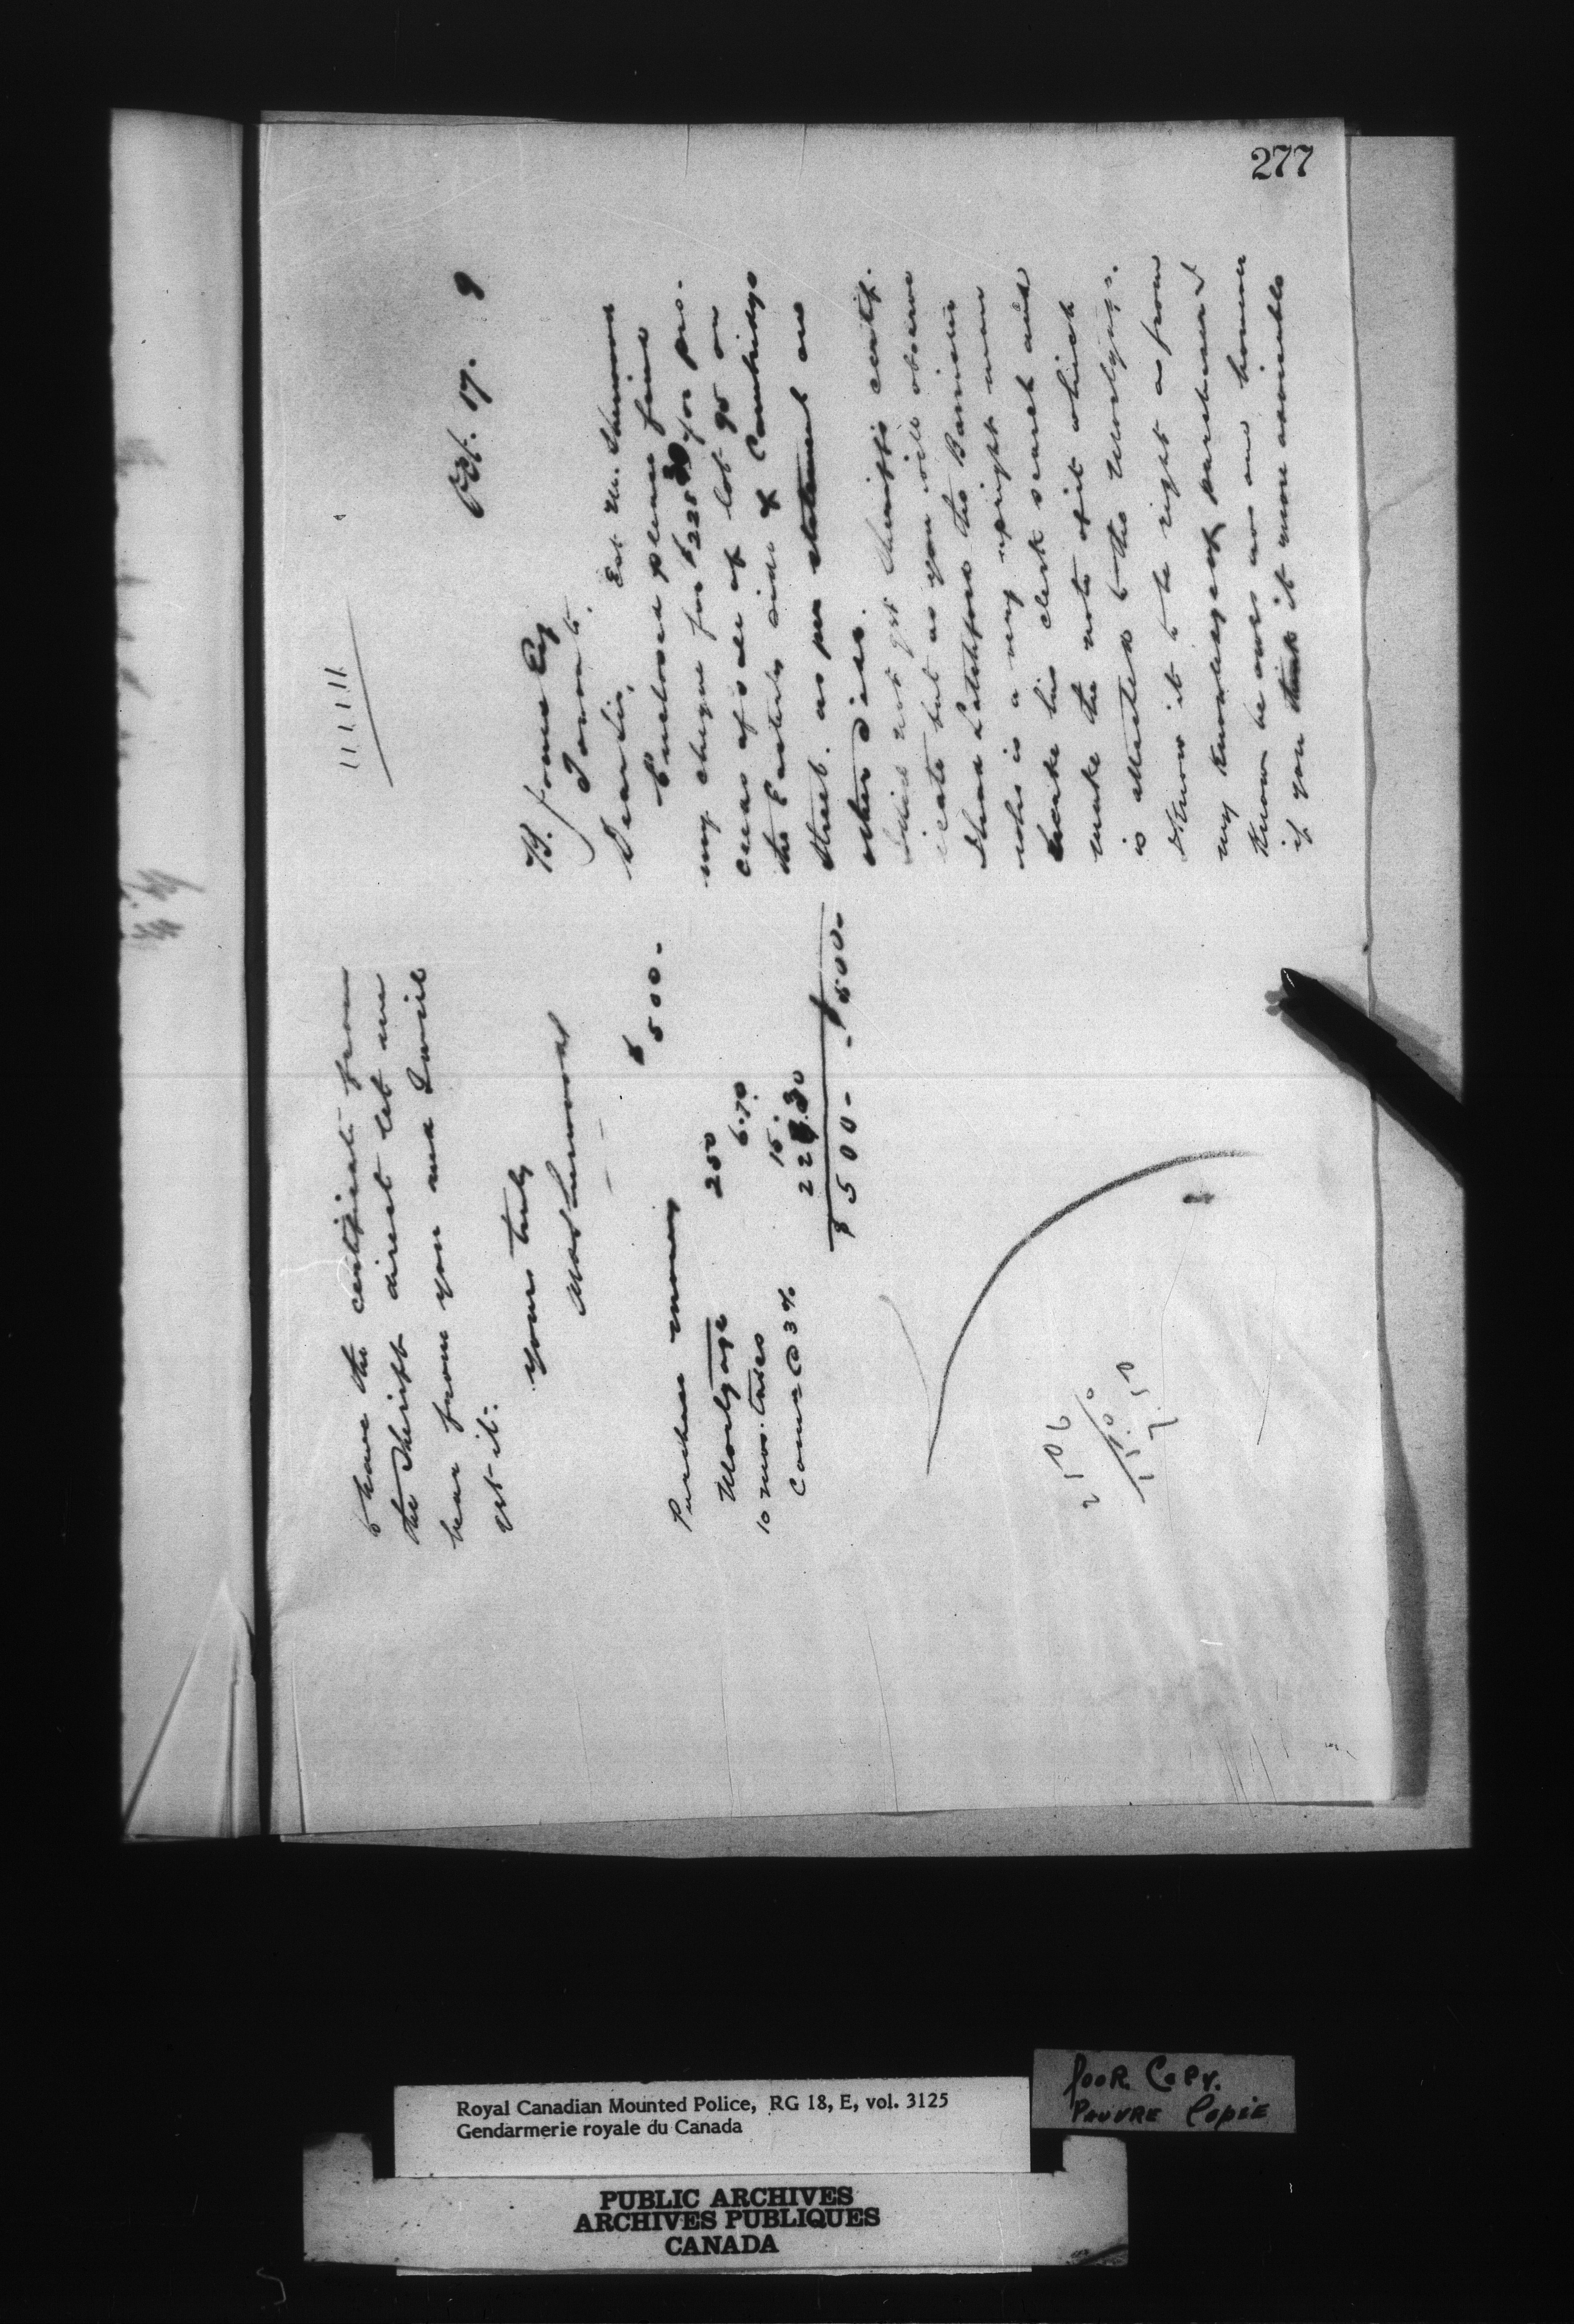 277
Oct. 17. 9
B. Jones Esq
Toronto.
Dear Sir, Est M. Sherwood
Enclosed please find
my cheque for $228.30 for pro-
ceeds of sale of lot 95 on
the Easterly side of Cambridge
Street. as per statement and
other side.
I did not get Sheriff's certif-
icate but as you will observe
I had Latchford the Barrister
who is a very upright man
make his clerk search and
make the note of it which
is attached to the Mortgage.
I know it to be right as from
my knowledge of purchaser I
know he owes no one however
if you think it more advisable
to have the certificate from
the Sheriff direct let me
hear from you and I will
get it.
yours truly
Sherwood
Purchase money $500-
Mortgage 250
10 mos. taxes 6.70
Coms @ 3% 15.
228.30
$500- - $500-
Royal Canadian Mounted Police, RG 18, E, vol. 3125
Gendarmerie royale du Canada
Poor Copy.
Pauvre Copie
PUBLIC ARCHIVES
ARCHIVES PUBLIQUES
CANADA